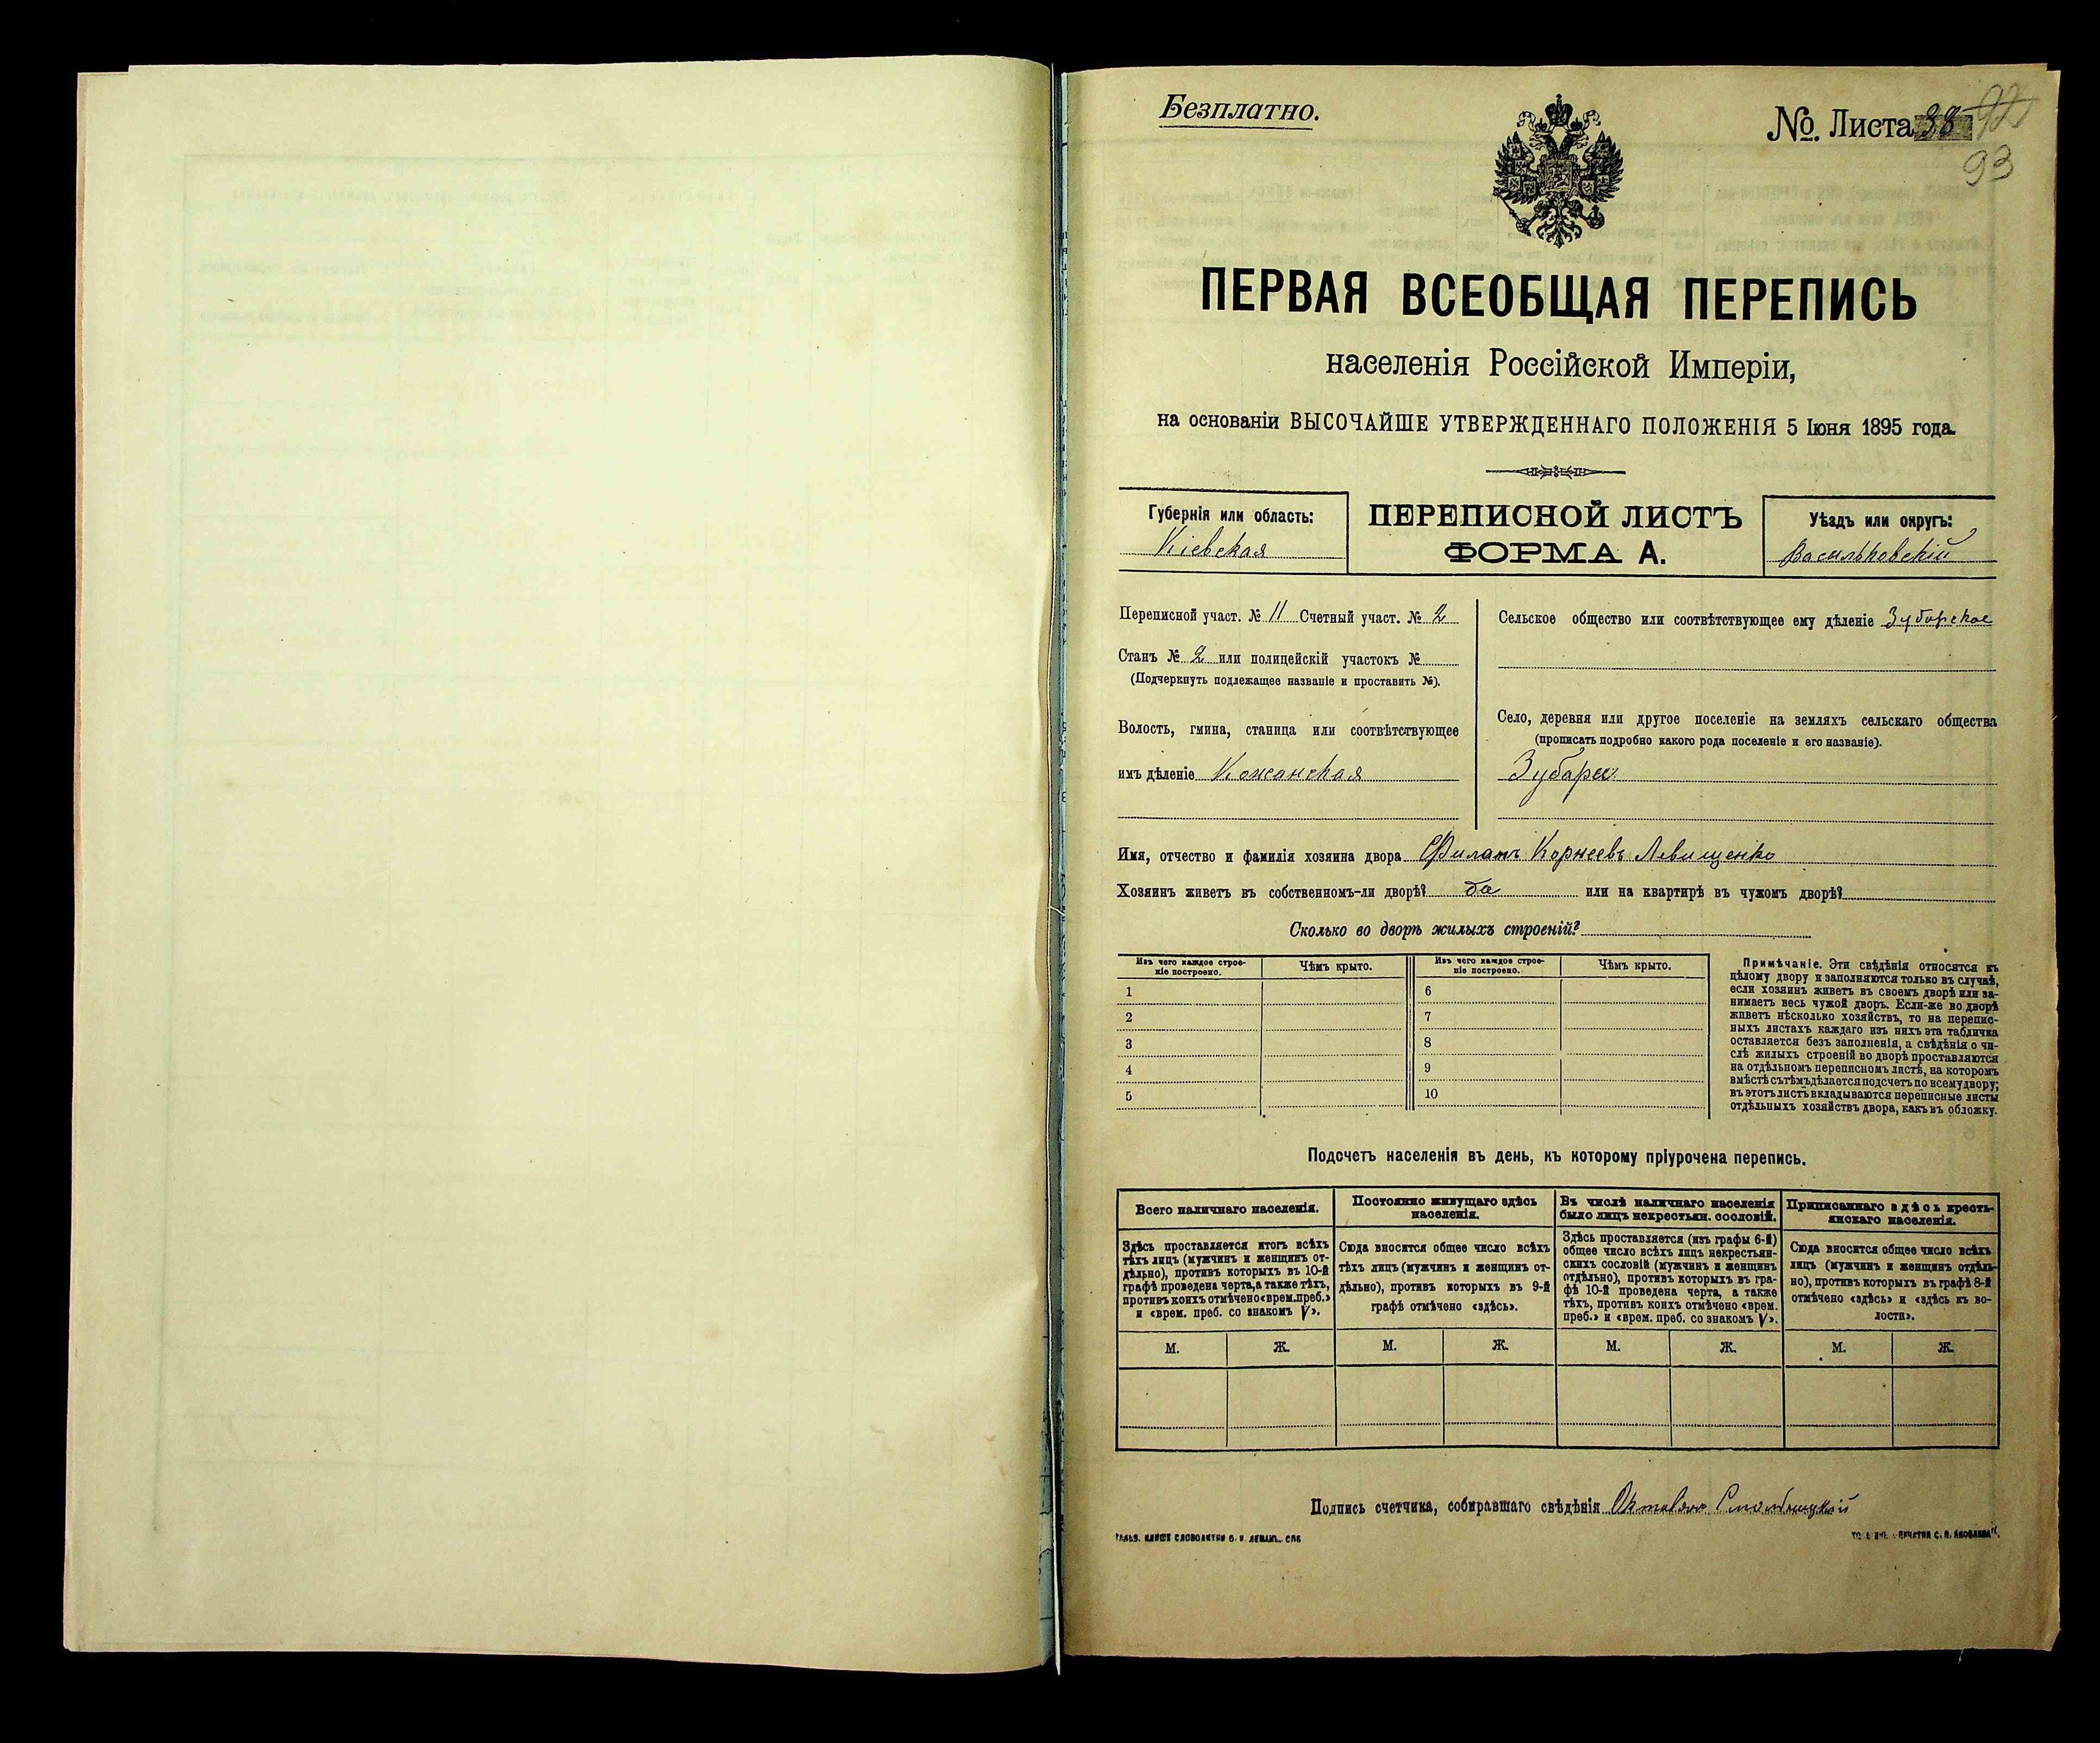 Безплатно.
№ Листа 38
93
ПЕРВАЯ ВСЕОБЩАЯ ПЕРЕПИСЬ
населенія Россійской Имперіи,
на основаніи ВЫСОЧАЙШЕ УТВЕРЖДЕННАГО ПОЛОЖЕНІЯ 5 Іюня 1895 года.
Губернія или область:
Кіевская
ПЕРЕПИСНОЙ ЛИСТЪ
ФОРМА А.
Уѣздъ или округъ:
Васильковскій
Переписной участ. № 11 Счетный участ. № 2
Станъ № 2 или полицейскій участокъ №
(Подчеркнуть подлежащее названіе и проставить №).
Волость, гмина, станица или соотвѣтствующее
имъ дѣленіе Кожанская
Сельское общество или соотвѣтствующее ему дѣленіе Зубарское
Село, деревня или другое поселеніе на земляхъ сельскаго общества
(прописать подробно какого рода поселеніе и его названіе).
Зубари
Имя, отчество и фамилія хозяина двора Филапъ Корнеевъ Левищенко
Хозяинъ живетъ въ собственномъ-ли дворѣ? да или на квартирѣ въ чужомъ дворѣ?
Сколько во дворѣ жилыхъ строеній?
Изъ чего каждое строе-
ніе построено.
Чѣмъ крыто.
Изъ чего каждое строе-
ніе построено.
Чѣмъ крыто.
1
2
3
4
5
6
7
8
9
10
Примѣчаніе. Эти свѣдѣнія относятся къ
цѣлому двору и заполняются только въ случаѣ,
если хозяинъ живетъ въ своемъ дворѣ или за-
нимаетъ весь чужой дворъ. Если-же во дворѣ
живетъ нѣсколько хозяйствъ, то на перепис-
ныхъ листахъ каждаго изъ нихъ эта табличка
оставляется безъ заполненія, а свѣдѣнія о чи-
слѣ жилыхъ строеній во дворѣ проставляются
на отдѣльномъ переписномъ листѣ, на которомъ
вмѣстѣ съ тѣмъ дѣлается подсчетъ по всему двору;
въ этотъ листъ вкладываются переписные листы
отдѣльныхъ хозяйствъ двора, какъ въ обложку.
Подсчетъ населенія въ день, къ которому пріурочена перепись.
Всего наличнаго населенія.
Здѣсь проставляется итогъ всѣхъ
тѣхъ лицъ (мужчинъ и женщинъ от-
дѣльно), противъ которыхъ въ 10-й
графѣ проведена черта, а также тѣхъ,
противъ коихъ отмѣчено «врем. преб.»
и «врем. преб. со знакомъ V».
Постоянно живущаго здѣсь
населенія.
Сюда вносится общее число всѣхъ
тѣхъ лицъ (мужчинъ и женщинъ от-
дѣльно), противъ которыхъ въ 9-й
графѣ отмѣчено «здѣсь».
Въ числѣ наличнаго населенія
было лицъ некрестьян. сословій.
Здѣсь проставляется (изъ графы 6-й)
общее число всѣхъ лицъ некрестьян-
скихъ сословій (мужчинъ и женщинъ
отдѣльно), противъ которыхъ въ гра-
фѣ 10-й проведена черта, а также
тѣхъ, противъ коихъ отмѣчено «врем.
преб.» и «врем. преб. со знакомъ V».
Приписаннаго здѣсь кресть-
янскаго населенія.
Сюда вносится общее число всѣхъ
лицъ (мужчинъ и женщинъ отдѣль-
но), противъ которыхъ въ графѣ 8-й
отмѣчено «здѣсь» и «здѣсь къ во-
лости».
М. Ж. М. Ж. М. Ж. М. Ж.
Подпись счетчика, собиравшаго свѣдѣнія